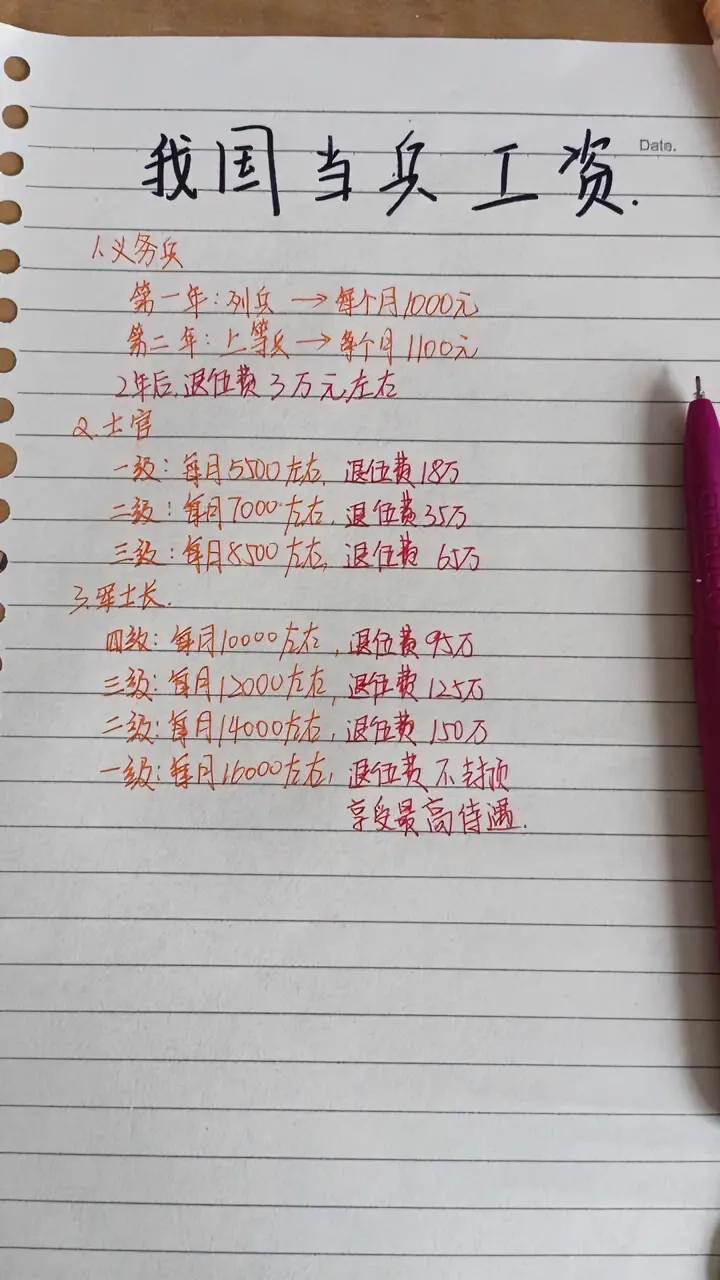 Date.
我国当兵工资.
1.义务兵
第一年:列兵 → 每个月1000元
第二年:上等兵 → 每个月1100元
2年后,退伍费3万元左右
2.士官
一级:每月5500左右,退伍费18万
二级:每月7000左右,退伍费35万
三级:每月8500左右,退伍费 65万
3.军士长.
四级:每月10000左右,退伍费95万
三级:每月12000左右,退伍费125万
二级:每月14000左右,退伍费150万
一级:每月16000左右,退伍费不封顶
享受最高待遇.